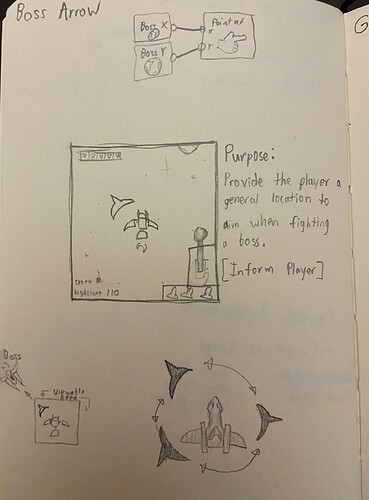 Boss Arrow
Boss X
Point at
x
Boss Y
Y
G
Purpose:
Provide the player a
general location to
aim when fighting
a boss.
[Inform Player]
Score
highscore 110
Boss
Viewable
Area